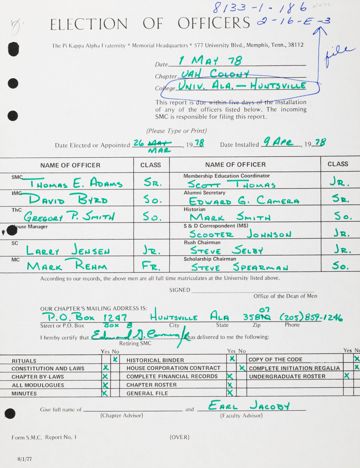 8133-1-186
2-16-E-3
file
ELECTION OF OFFICERS
The Pi Kappa Alpha Fraternity * Memorial Headquarters * 577 University Blvd., Memphis, Tenn., 38112
Date 1 MAY 78
Chapter UAH COLONY
College UNIV. ALA. - HUNTSVILLE
This report is due within five days of the installation
of any of the officers listed below. The incoming
SMC is responsible for filing this report.
(Please Type or Print)
Date Elected or Appointed 26 MAR 1978 Date Installed 9 APR 1978
NAME OF OFFICER CLASS NAME OF OFFICER CLASS
SMC THOMAS E. ADAMS SR. Membership Education Coordinator SCOTT THOMAS JR.
IMC DAVID BYRD SO. Alumni Secretary EDWARD G. CAMERA SR.
ThC GREGORY P. SMITH SO. Historian MARK SMITH SO.
House Manager S & D Correspondent (MS) SCOOTER JOHNSON JR.
SC LARRY JENSEN JR. Rush Chairman STEVE SELBY JR.
MC MARK REHM FR. Scholarship Chairman STEVE SPEARMAN SO.
According to our records, the above men are all full time matriculates at the University listed above.
SIGNED
Office of the Dean of Men
OUR CHAPTER'S MAILING ADDRESS IS:
P.O. BOX 1247 HUNTSVILLE ALA 35807 (205) 859-1246
Street or P.O. Box City State Zip Phone
I hereby certify that has delivered to me the following:
Retiring SMC
Yes No Yes No Yes No
RITUALS X HISTORICAL BINDER X COPY OF THE CODE X
CONSTITUTION AND LAWS X HOUSE CORPORATION CONTRACT X COMPLETE INITIATION REGALIA X
CHAPTER BY-LAWS X COMPLETE FINANCIAL RECORDS X UNDERGRADUATE ROSTER X
ALL MODULOGUES X CHAPTER ROSTER X
MINUTES X GENERAL FILE X
Give full name of and EARL JACOBY
(Chapter Advisor) (Faculty Advisor)
Form S.M.C. Report No. 1 (OVER)
8/1/77